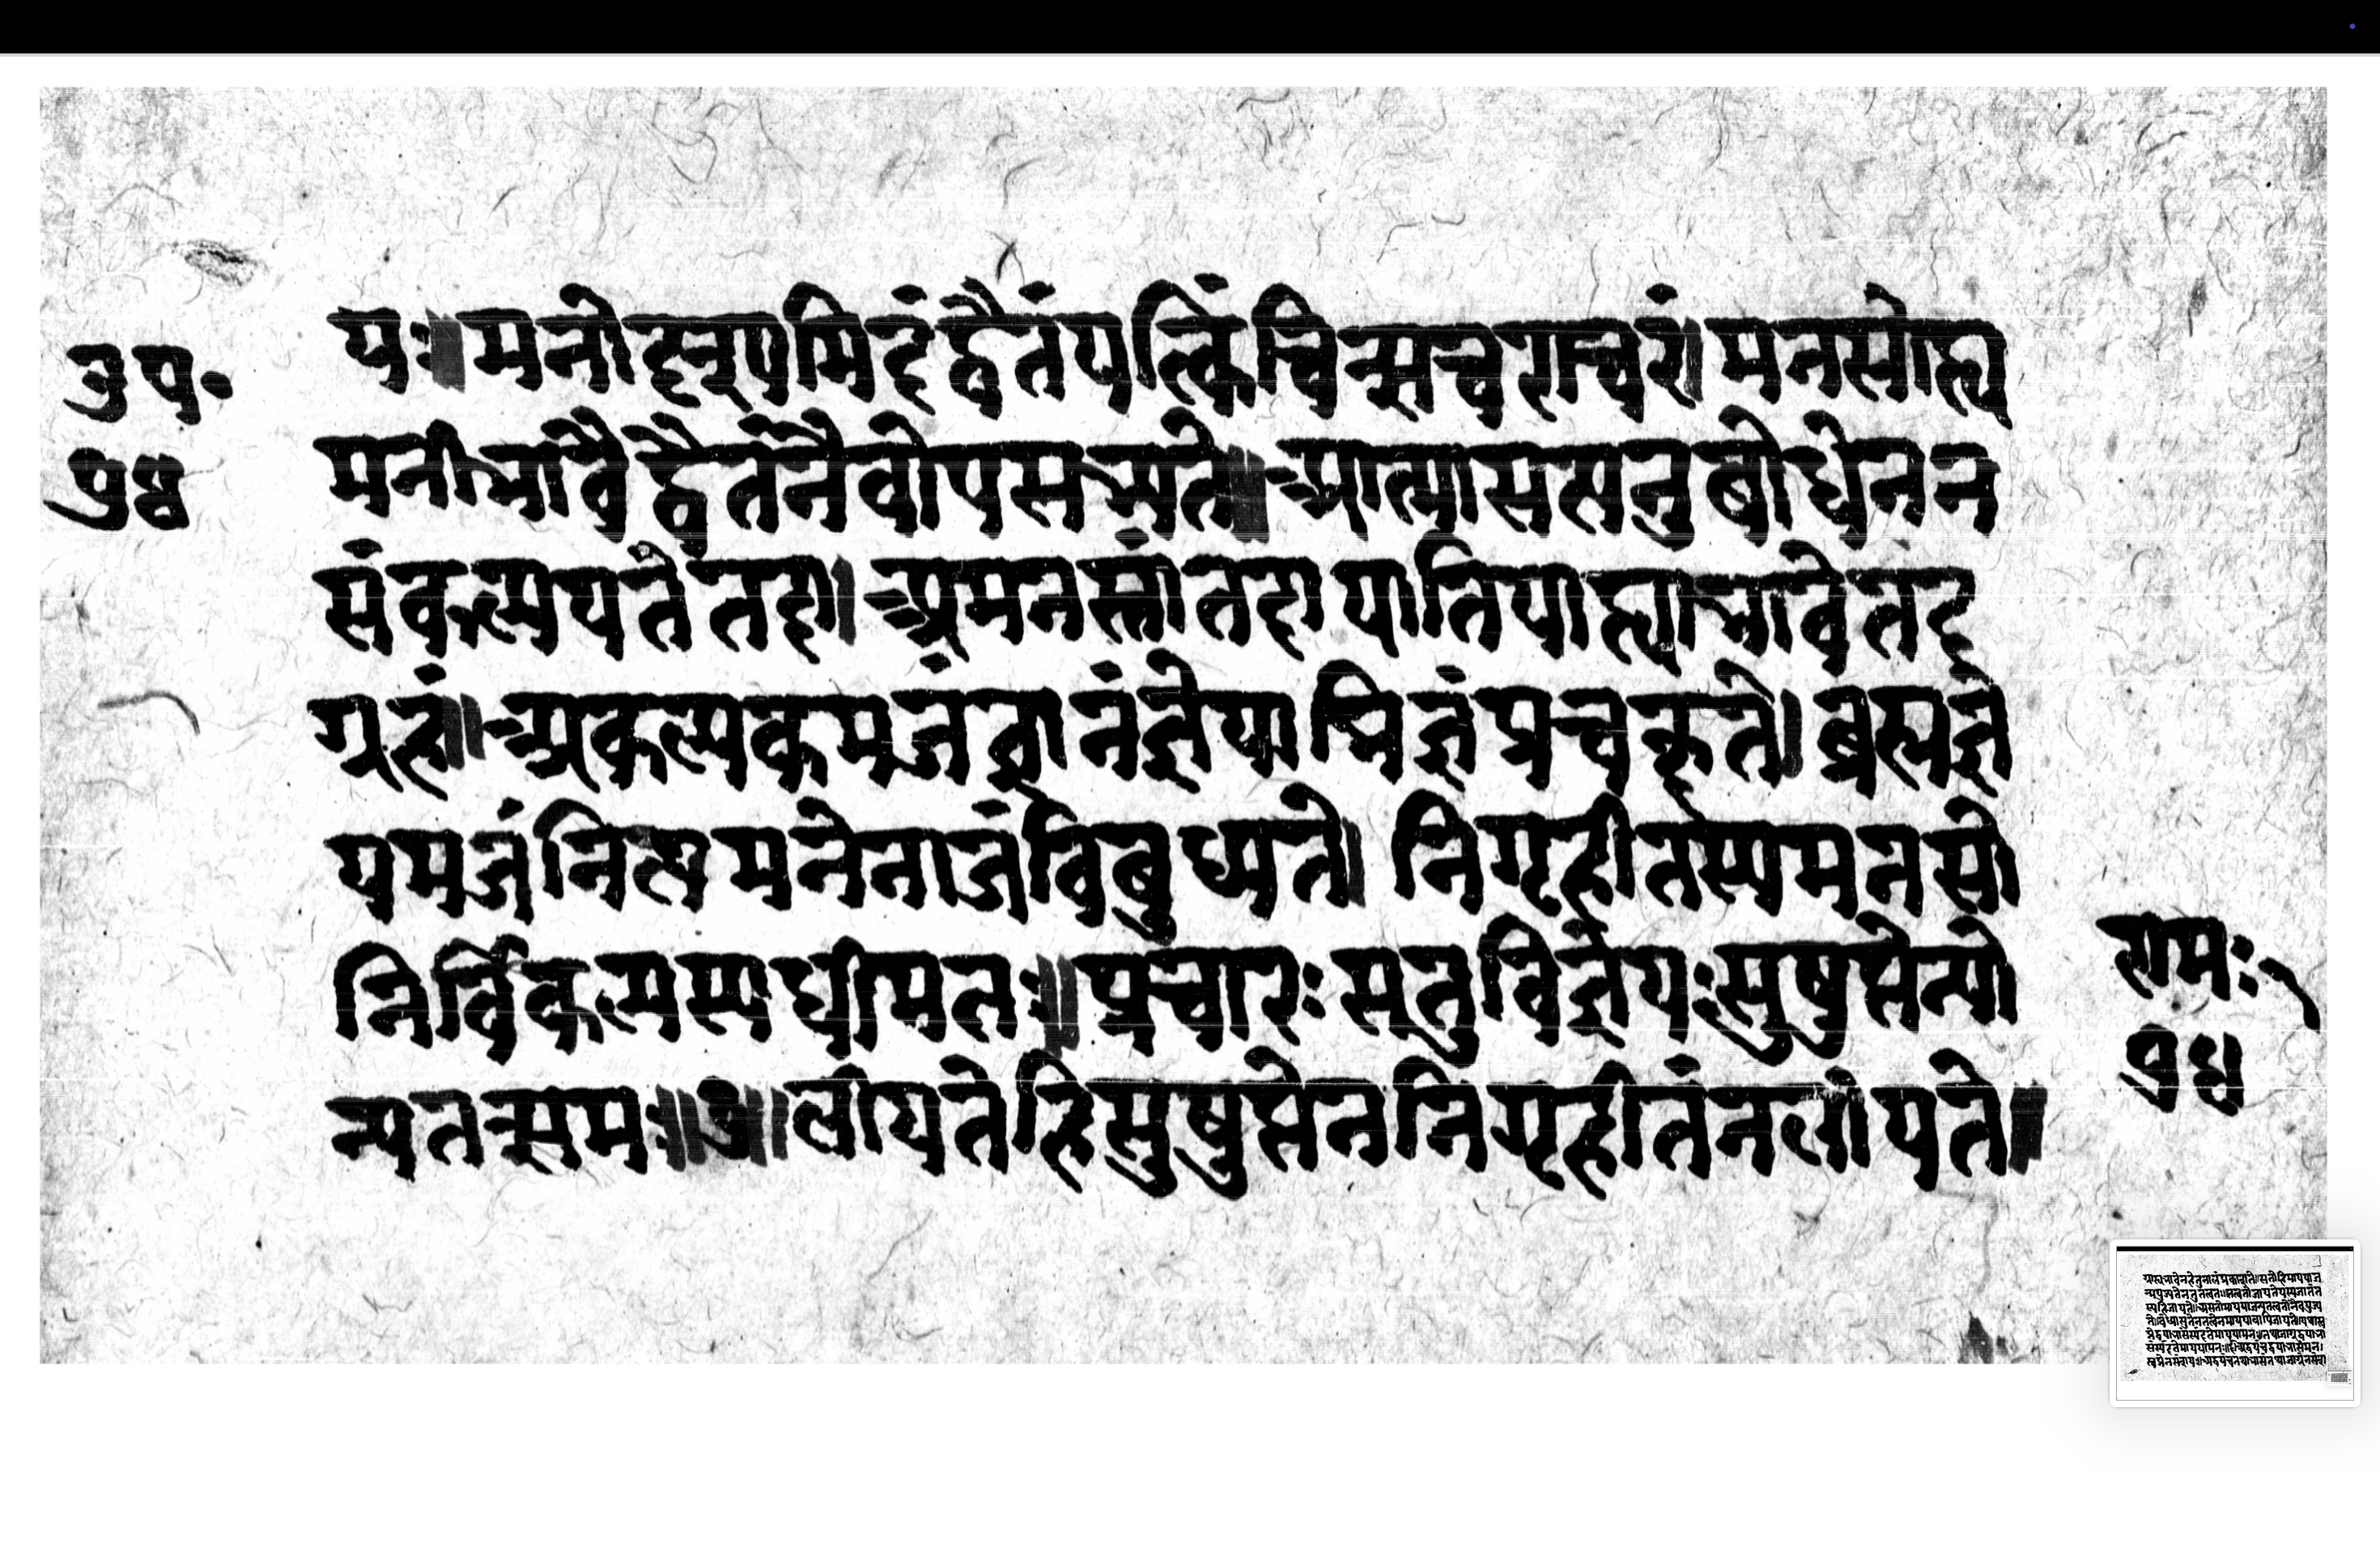 यः॥मनोदृस्यमिदंद्वैतंयत्किंचित्सचराचरं।मनसोह्य
उप॰
मनीभावेद्वैतंनैवोपलभ्यते॥आत्मासत्यानुबोधेनन
५४
संकल्पयतेतदा।अमनस्तांतदायातिग्राह्याभावेतद
ग्रहं॥अकल्पकमजंज्ञानंज्ञेयाभिन्नंप्रचक्षते।ब्रह्मज्ञे
यमजंनित्यमजेनाजंविबुध्यते।निगृहीतस्यमनसो
निर्विकल्पस्यधीमतः॥प्रचारःसतुविज्ञेयःसुषुप्तेन्यो
रामः
न्यतत्समः॥७॥लीयतेहिसुषुप्तेननिगृहीतंनलीयते॥
५४